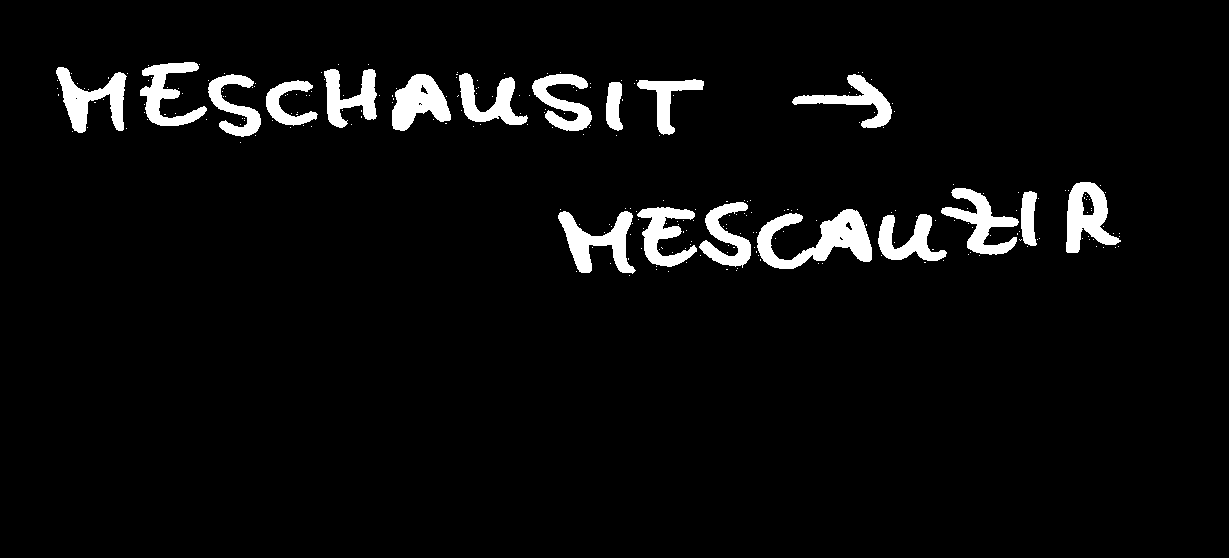 MESCHAUSIT →
MESCAUZIR